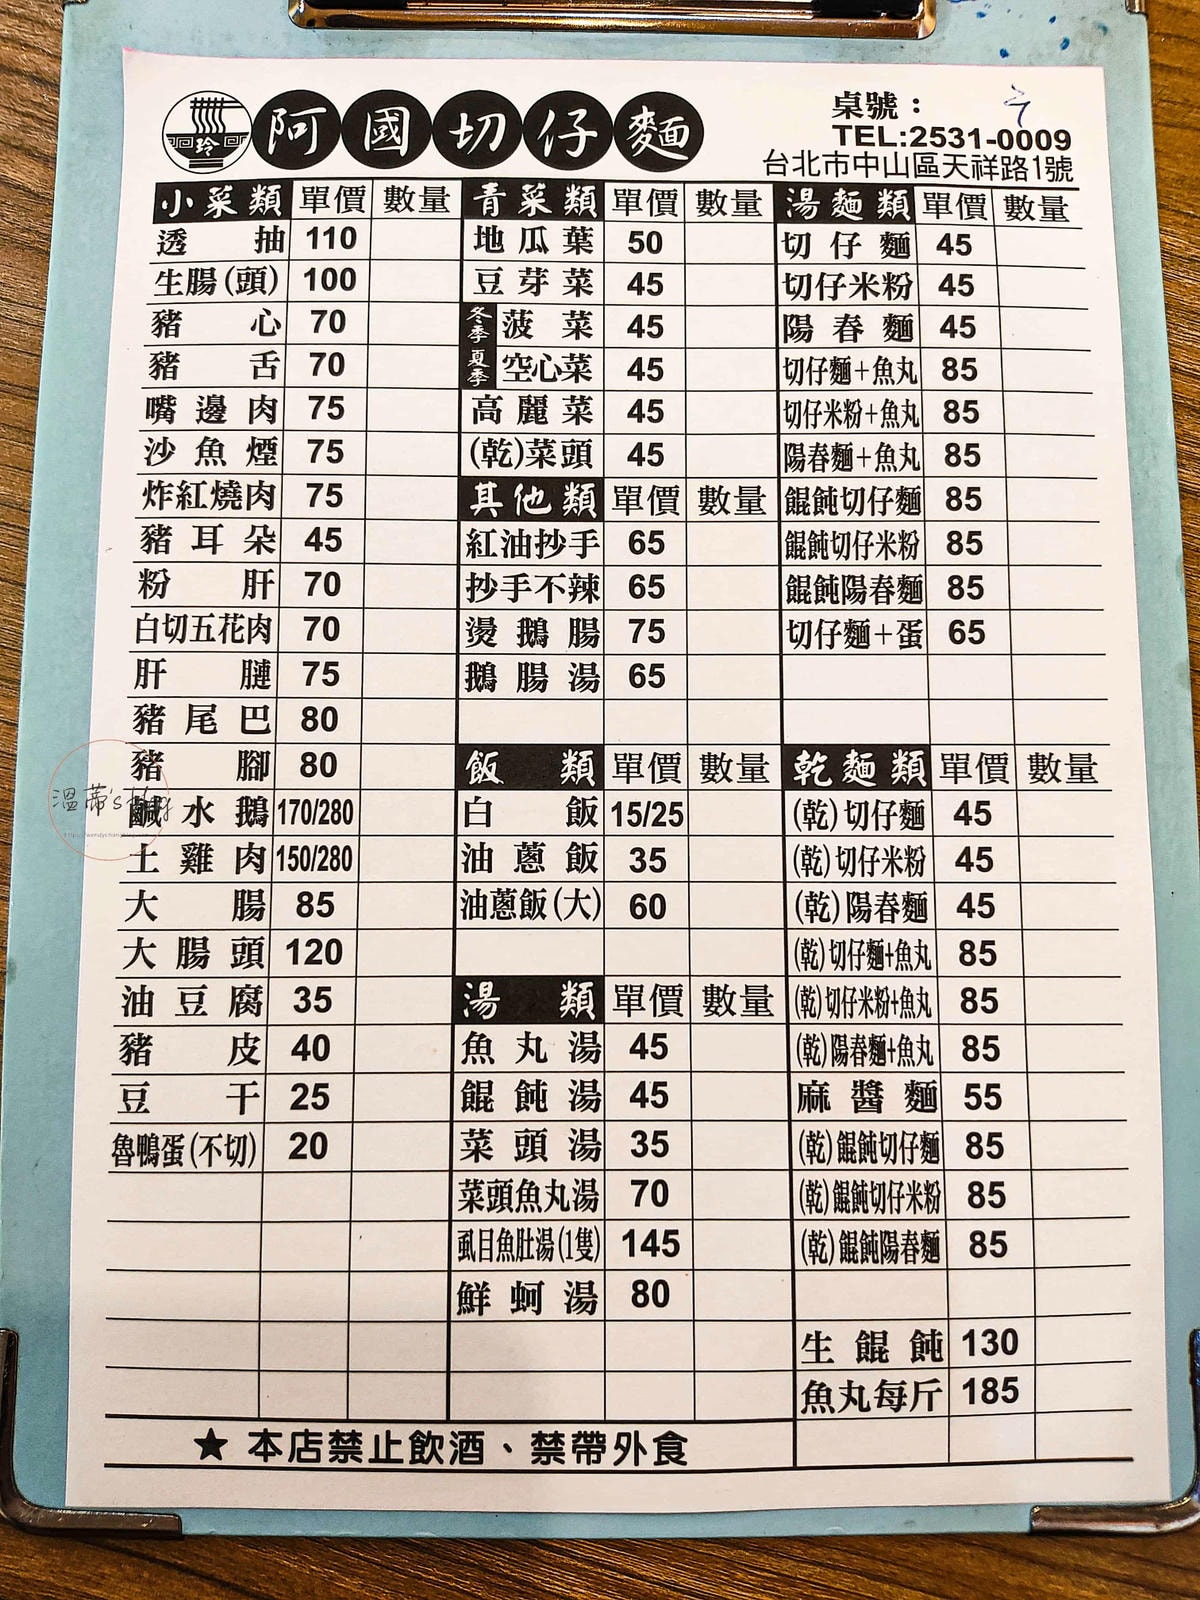 玲 阿國切仔麵
桌號：
TEL:2531-0009
台北市中山區天祥路1號
小菜類 單價 數量
透抽 110
生腸(頭) 100
豬心 70
豬舌 70
嘴邊肉 75
沙魚煙 75
炸紅燒肉 75
豬耳朵 45
粉肝 70
白切五花肉 70
肝腱 75
豬尾巴 80
豬腳 80
鹹水鵝 170/280
土雞肉 150/280
大腸 85
大腸頭 120
油豆腐 35
豬皮 40
豆干 25
魯鴨蛋(不切) 20
青菜類 單價 數量
地瓜葉 50
豆芽菜 45
冬季 菠菜 45
夏季 空心菜 45
高麗菜 45
(乾)菜頭 45
其他類 單價 數量
紅油抄手 65
抄手不辣 65
燙鵝腸 75
鵝腸湯 65
飯類 單價 數量
白飯 15/25
油蔥飯 35
油蔥飯(大) 60
湯類 單價 數量
魚丸湯 45
餛飩湯 45
菜頭湯 35
菜頭魚丸湯 70
虱目魚肚湯(1隻) 145
鮮蚵湯 80
湯麵類 單價 數量
切仔麵 45
切仔米粉 45
陽春麵 45
切仔麵+魚丸 85
切仔米粉+魚丸 85
陽春麵+魚丸 85
餛飩切仔麵 85
餛飩切仔米粉 85
餛飩陽春麵 85
切仔麵+蛋 65
乾麵類 單價 數量
(乾)切仔麵 45
(乾)切仔米粉 45
(乾)陽春麵 45
(乾)切仔麵+魚丸 85
(乾)切仔米粉+魚丸 85
(乾)陽春麵+魚丸 85
麻醬麵 55
(乾)餛飩切仔麵 85
(乾)餛飩切仔米粉 85
(乾)餛飩陽春麵 85
生餛飩 130
魚丸每斤 185
★ 本店禁止飲酒、禁帶外食
溫蒂's blog